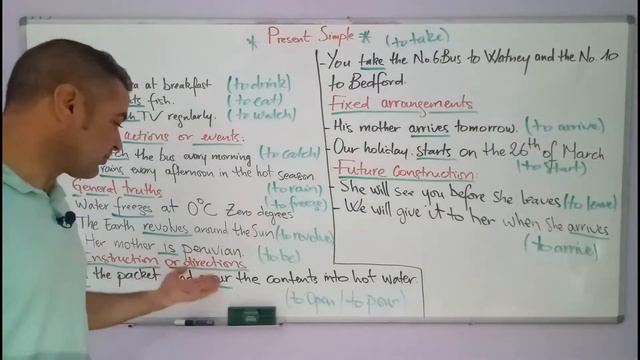 * Present Simple *
at breakfast (to drink)
fish. (to eat)
TV regularly. (to watch)
actions or events:
the bus every morning (to catch)
every afternoon in the hot season
General truths (to rain)
Water freezes at 0°C Zero degrees (to freeze)
The Earth revolves around the Sun (to revolve)
Her mother is peruvian. (to be)
or directions
the packet the contents into hot water
(to open / to pour)
(to take)
- You take the No.6 Bus to Watney and the No. 10
to Bedford.
Fixed arrangements
- His mother arrives tomorrow. (to arrive)
- Our holiday starts on the 26th of March
(to start)
Future Construction:
- She will see you before she leaves (to leave)
- We will give it to her when she arrives
(to arrive)